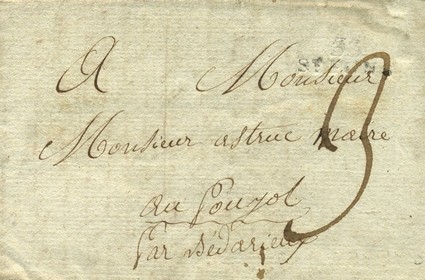 A Monsieur
Monsieur astruc maire
au poujol
par Bédarieux
3